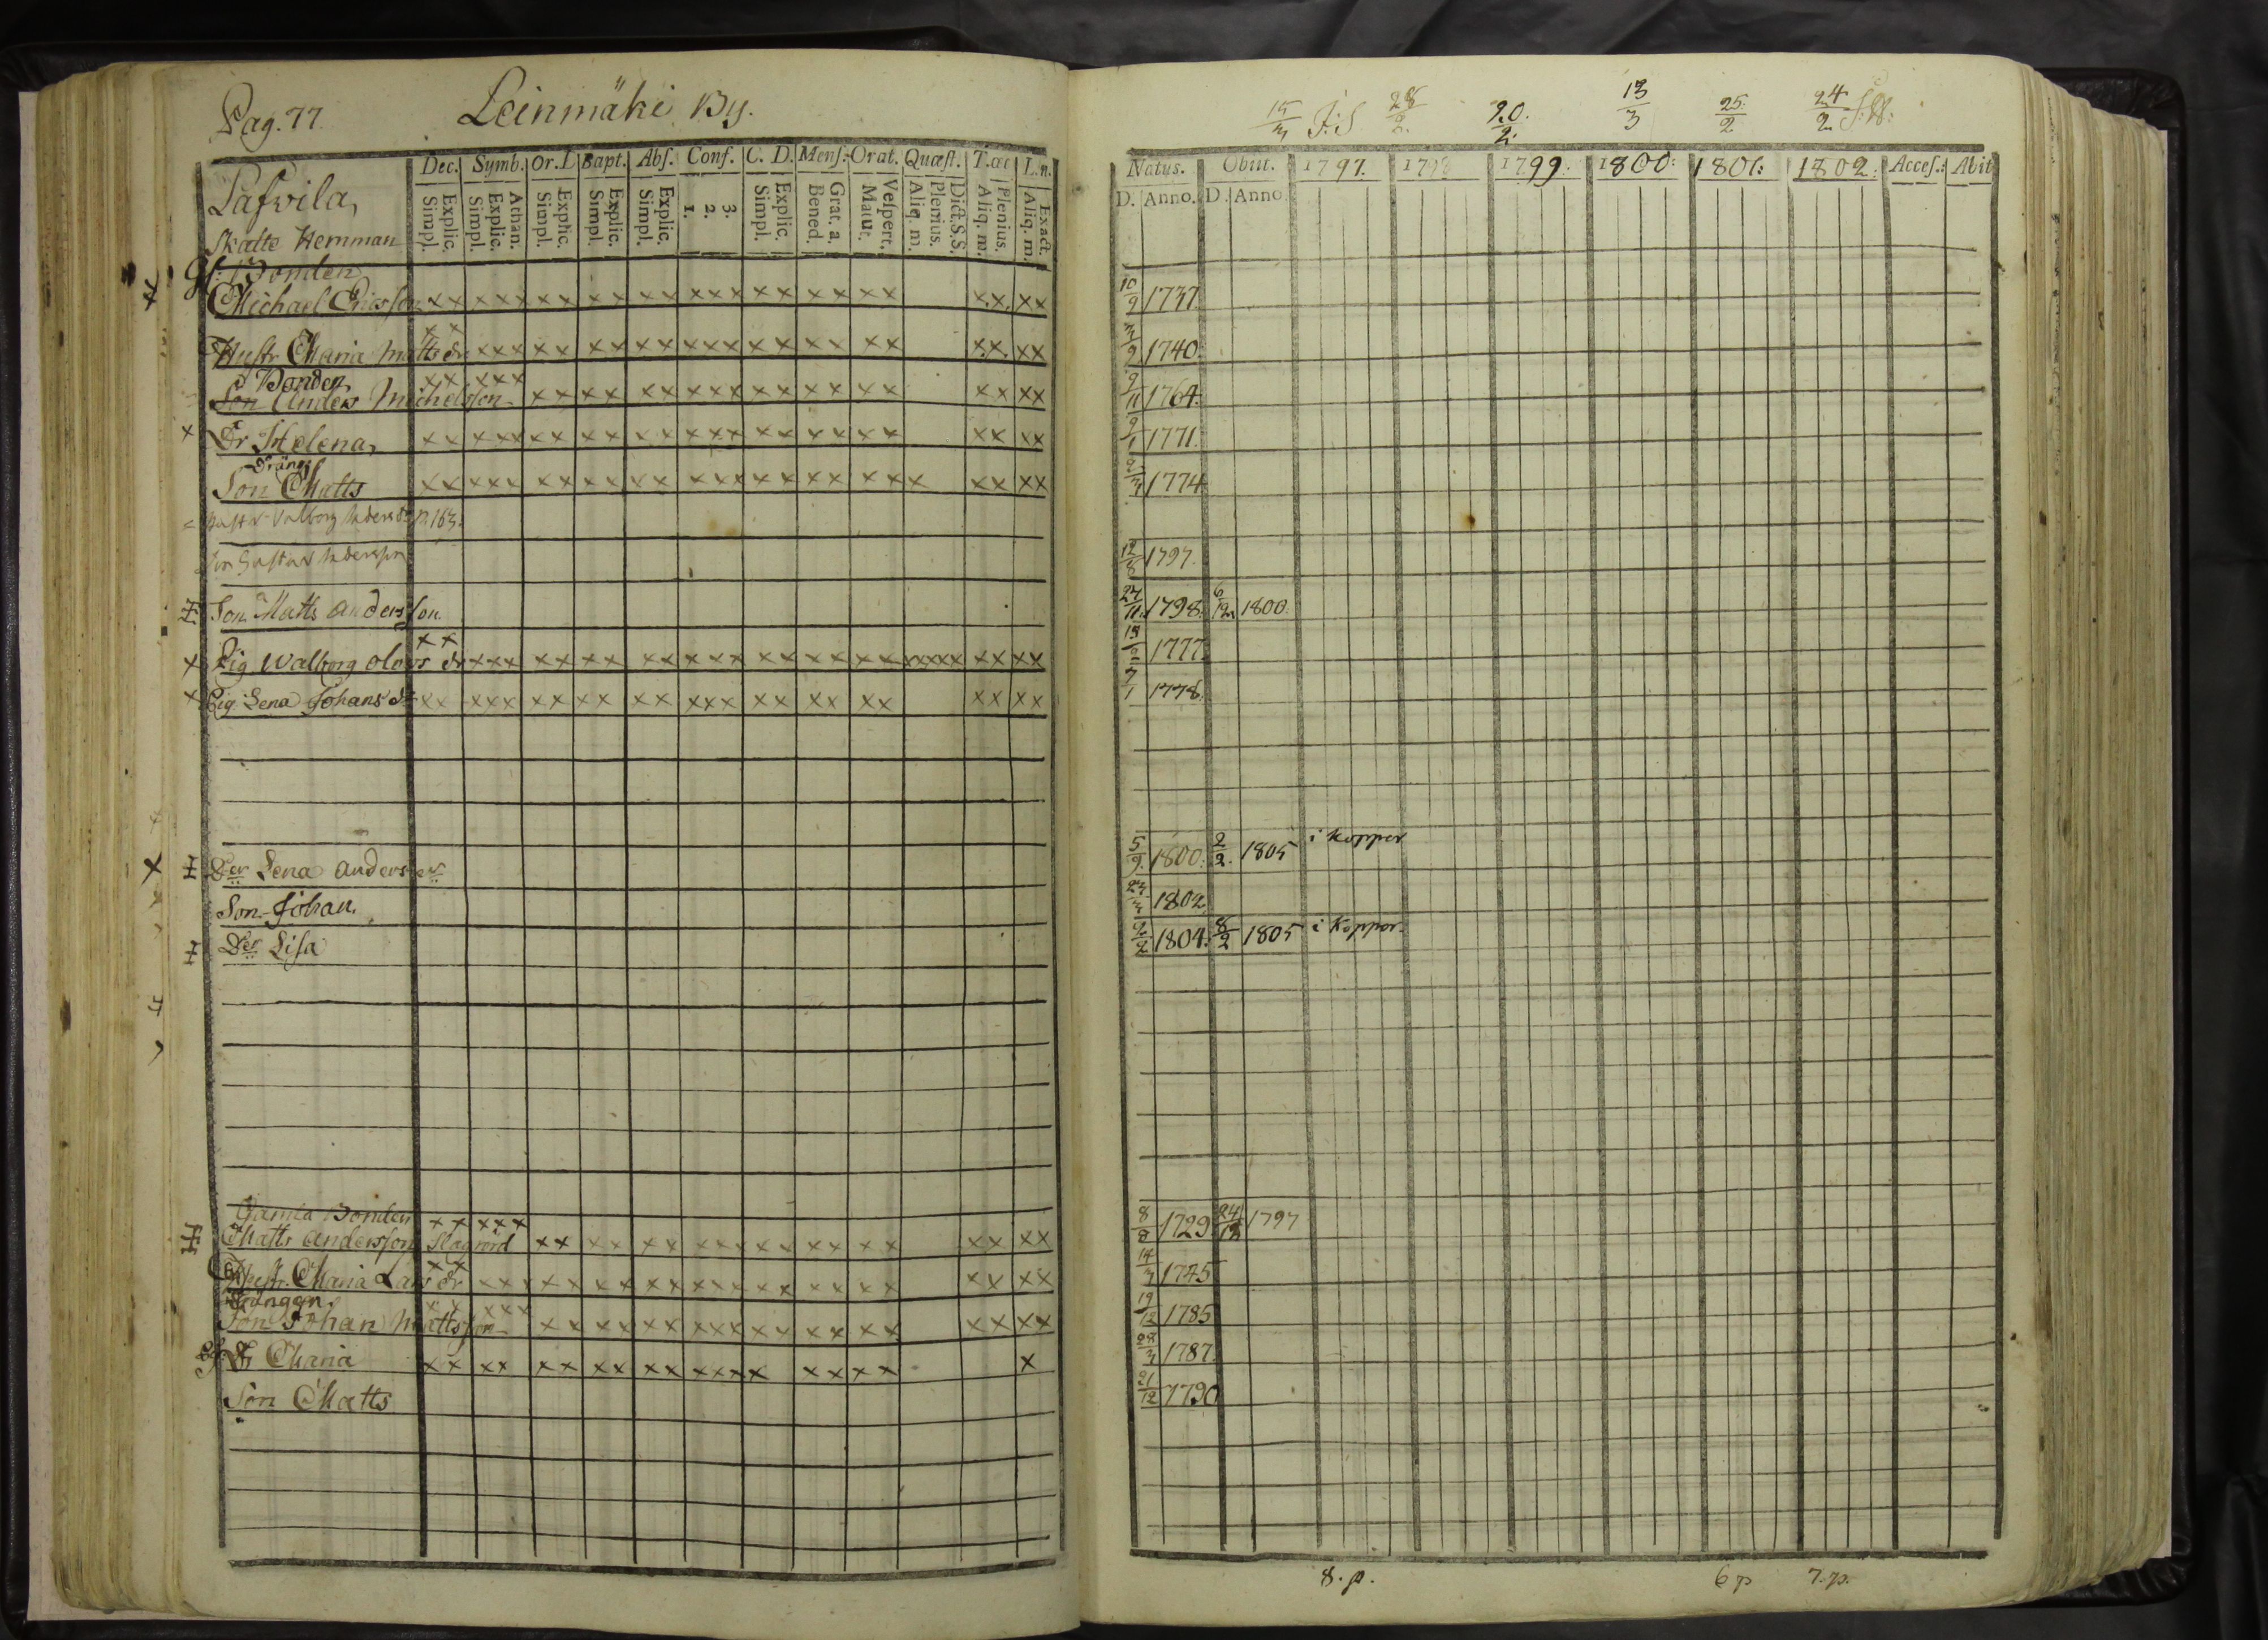 Pag. 77. Leinmäki By.
Dec. Symb. Or.D Bapt. Abſ. Conf. C. D. Menſ. Orat. Quæſt. T.œc L.n.
Explic. Simpl. Athan. Explic. Simpl. Explic. Simpl. Explic. Simpl. Explic. Simpl. 3. 2. 1. Explic. Simpl. Grat. a. Bened. Veſpert. Matut. Dict.S.S. Plenius. Aliq. m. Plenius. Aliq. m. Exact. Aliq. m.
Pafvila,
Skatte Hemman
Gf. Bonden
Michael Ericsson xx xxx xx xx xx xxx xx xx xx x.x. xx
xx
Hustr Maria Matts dr xxx xx xx xx xxx xx xx xx x.x. xx
Bonden xx xxx
Son Anders Michelsson xx xx xx xxx xx xx xx xx xx
x Dr Helena, xx xxx xx xx xx xxx xx xx xx xx xx
Dräng
Son Matts xx xxx xx xx xx xxx xx xx xx x xx xx
Hustr Valborg Anders dr p. 163.
Son Gustav Andersson
Son Matts Andersson.
xx
x Pig Walborg Olovs dr xxx xx xx xx xxx xx xx xx xxxxx xx xx
x Pig Lena Johans dr xx xxx xx xx xx xxx xx xx xx xx xx
x Der Lena Anders er
Son Johan.
Der Lisa
Gamla Bonden xx xxx
Matts Andersson Slagrörd xx xx xx xxx xx xx xx xx xx
xx
Hustr. Maria Lars dr xxx xx xx xx xxx xx xx xx xx xx
Drängen xx xxx
Son Johan Mattsson xx xx xx xxx xx xx xx xx xx
Dr Maria xx xx xx xx xx xxx x xx xx x
Son Matts
15/3 J:S 28/2. 20./2. 13/3 25./2 24/2.
Natus. Obiit. 1797. 1798 1799. 1800: 1801: 1802. Acceſ.: Abit
D. Anno. D. Anno.
10/9 1737.
1740.
9/11 1764.
9/1 1771.
1774
12/6 1797.
27/11. 1798. 6/12 1800.
1777.
7/1 1778.
5/9. 1800. 2/2. 1805 i koppor
23/3 1802.
2/2 1804. 8/2 1805 i Koppor.
8/8 1729 24/12 1797
14/3 1745
19/12 1785
28/3 1787.
21/12 1790
8. p. 6 p 7. p.